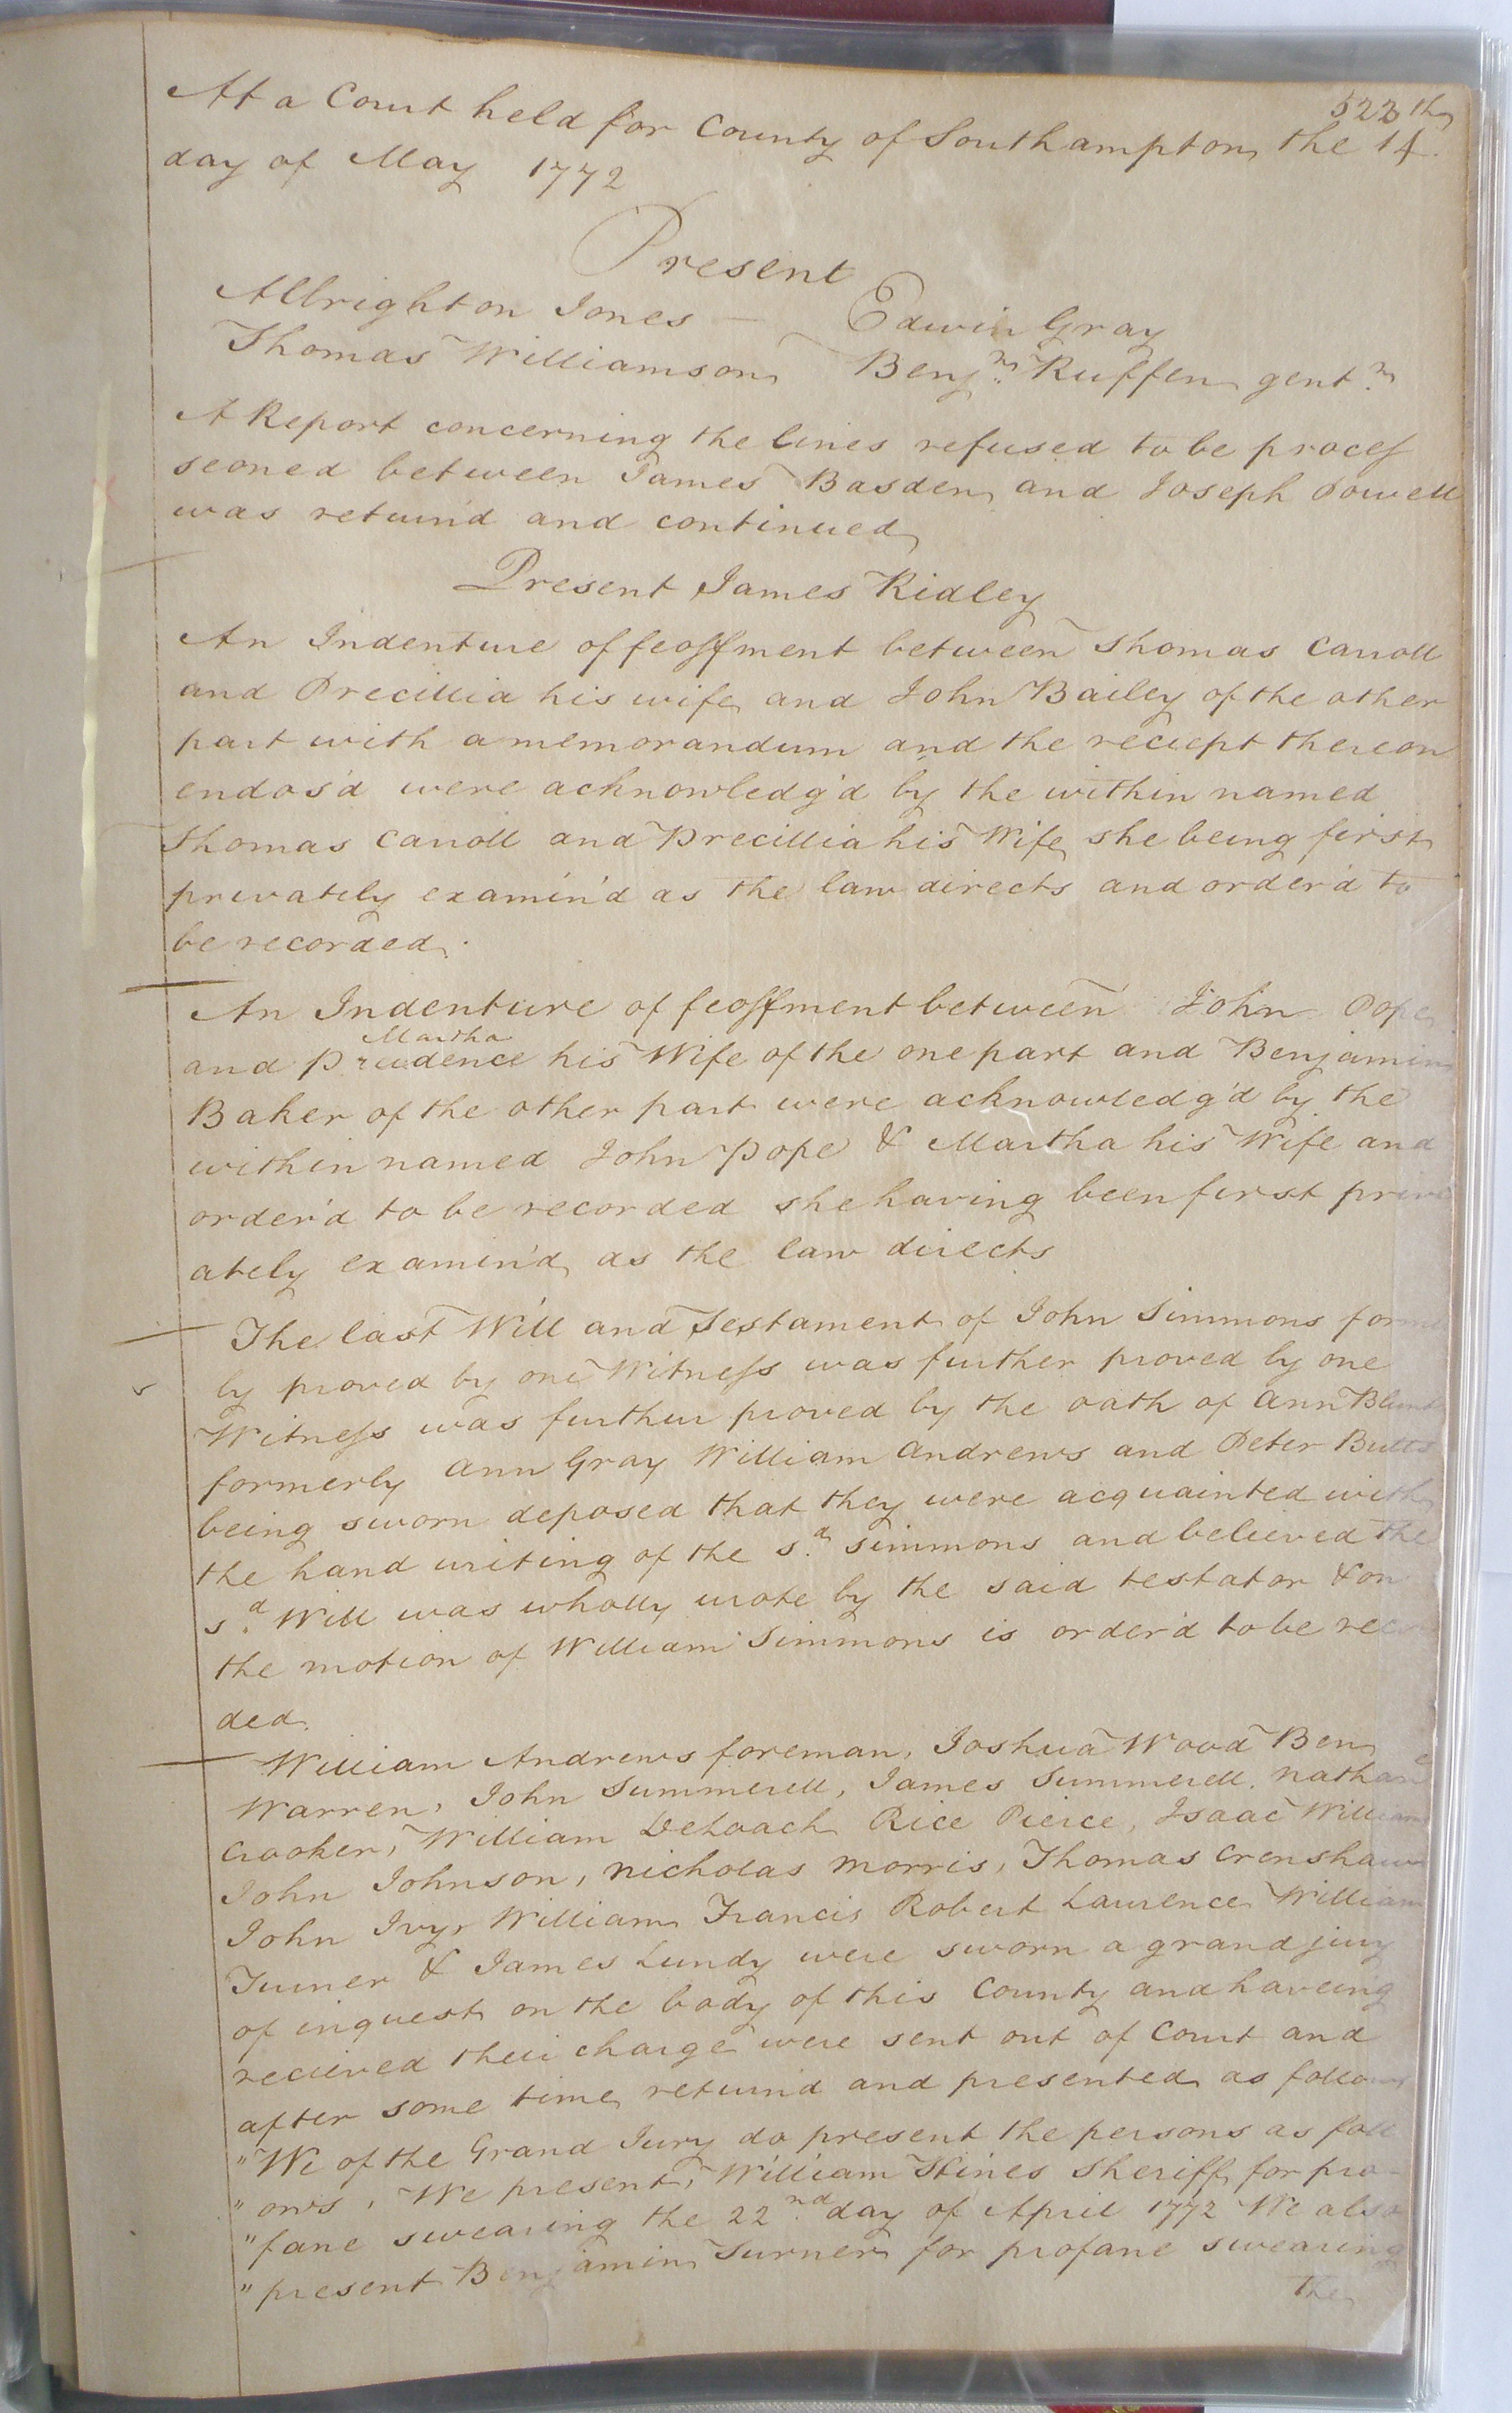 522
At a Court held for County of Southampton the 14th
day of May 1772
Present
Albrighton Jones — Edwin Gray
Thomas Williamson Benjn. Ruffen gentn.
A Report concerning the lines refused to be proces
seoned between James Basden and Joseph Powell
was return'd and continued
Present James Ridley
An Indenture of feoffment between Thomas Carroll
and Precillia his wife and John Bailey of the other
part with a memorandum and the reciept thereon
endors'd were acknowledg'd by the within named
Thomas Carroll and Precillia his Wife she being first
privately examin'd as the law directs and order'd to
be recorded.
An Indenture of feoffment between John Pope
Martha
and Prudence his Wife of the one part and Benjamin
Baker of the other part were acknowledg'd by the
within named John Pope & Martha his Wife and
order'd to be recorded she having been first priv
ately examin'd as the law directs
The last Will and Testament of John Simmons former
ly proved by one Witness was further proved by one
Witness was further proved by the oath of Ann Blunt
formerly Ann Gray William Andrews and Peter Butts
being sworn deposed that they were acquainted with
the hand writing of the sd. Simmons and believed the
sd. Will was wholly wrote by the said testator & on
the motion of William Simmons is order'd to be recor
ded.
William Andrews foreman, Joshua Wood Ben
Warren, John Summerell, James Summerell, Nathan
Crooker, William DeLoach Rice Pierce, Isaac William
John Johnson, Nicholas Morris, Thomas Crenshaw
John Ivy, William Francis Robert Laurence William
Turner & James Lundy were sworn a grand jury
of inquest on the body of this County and haveing
recieved their charge were sent out of Court and
after some time return'd and presented as follows
"We of the Grand Jury do present the persons as foll
"ows, We present, William Hines Sheriff for pro-
"fane swearing the 22nd. day of April 1772 We also
"present Benjamin Turner for profane swearing
The